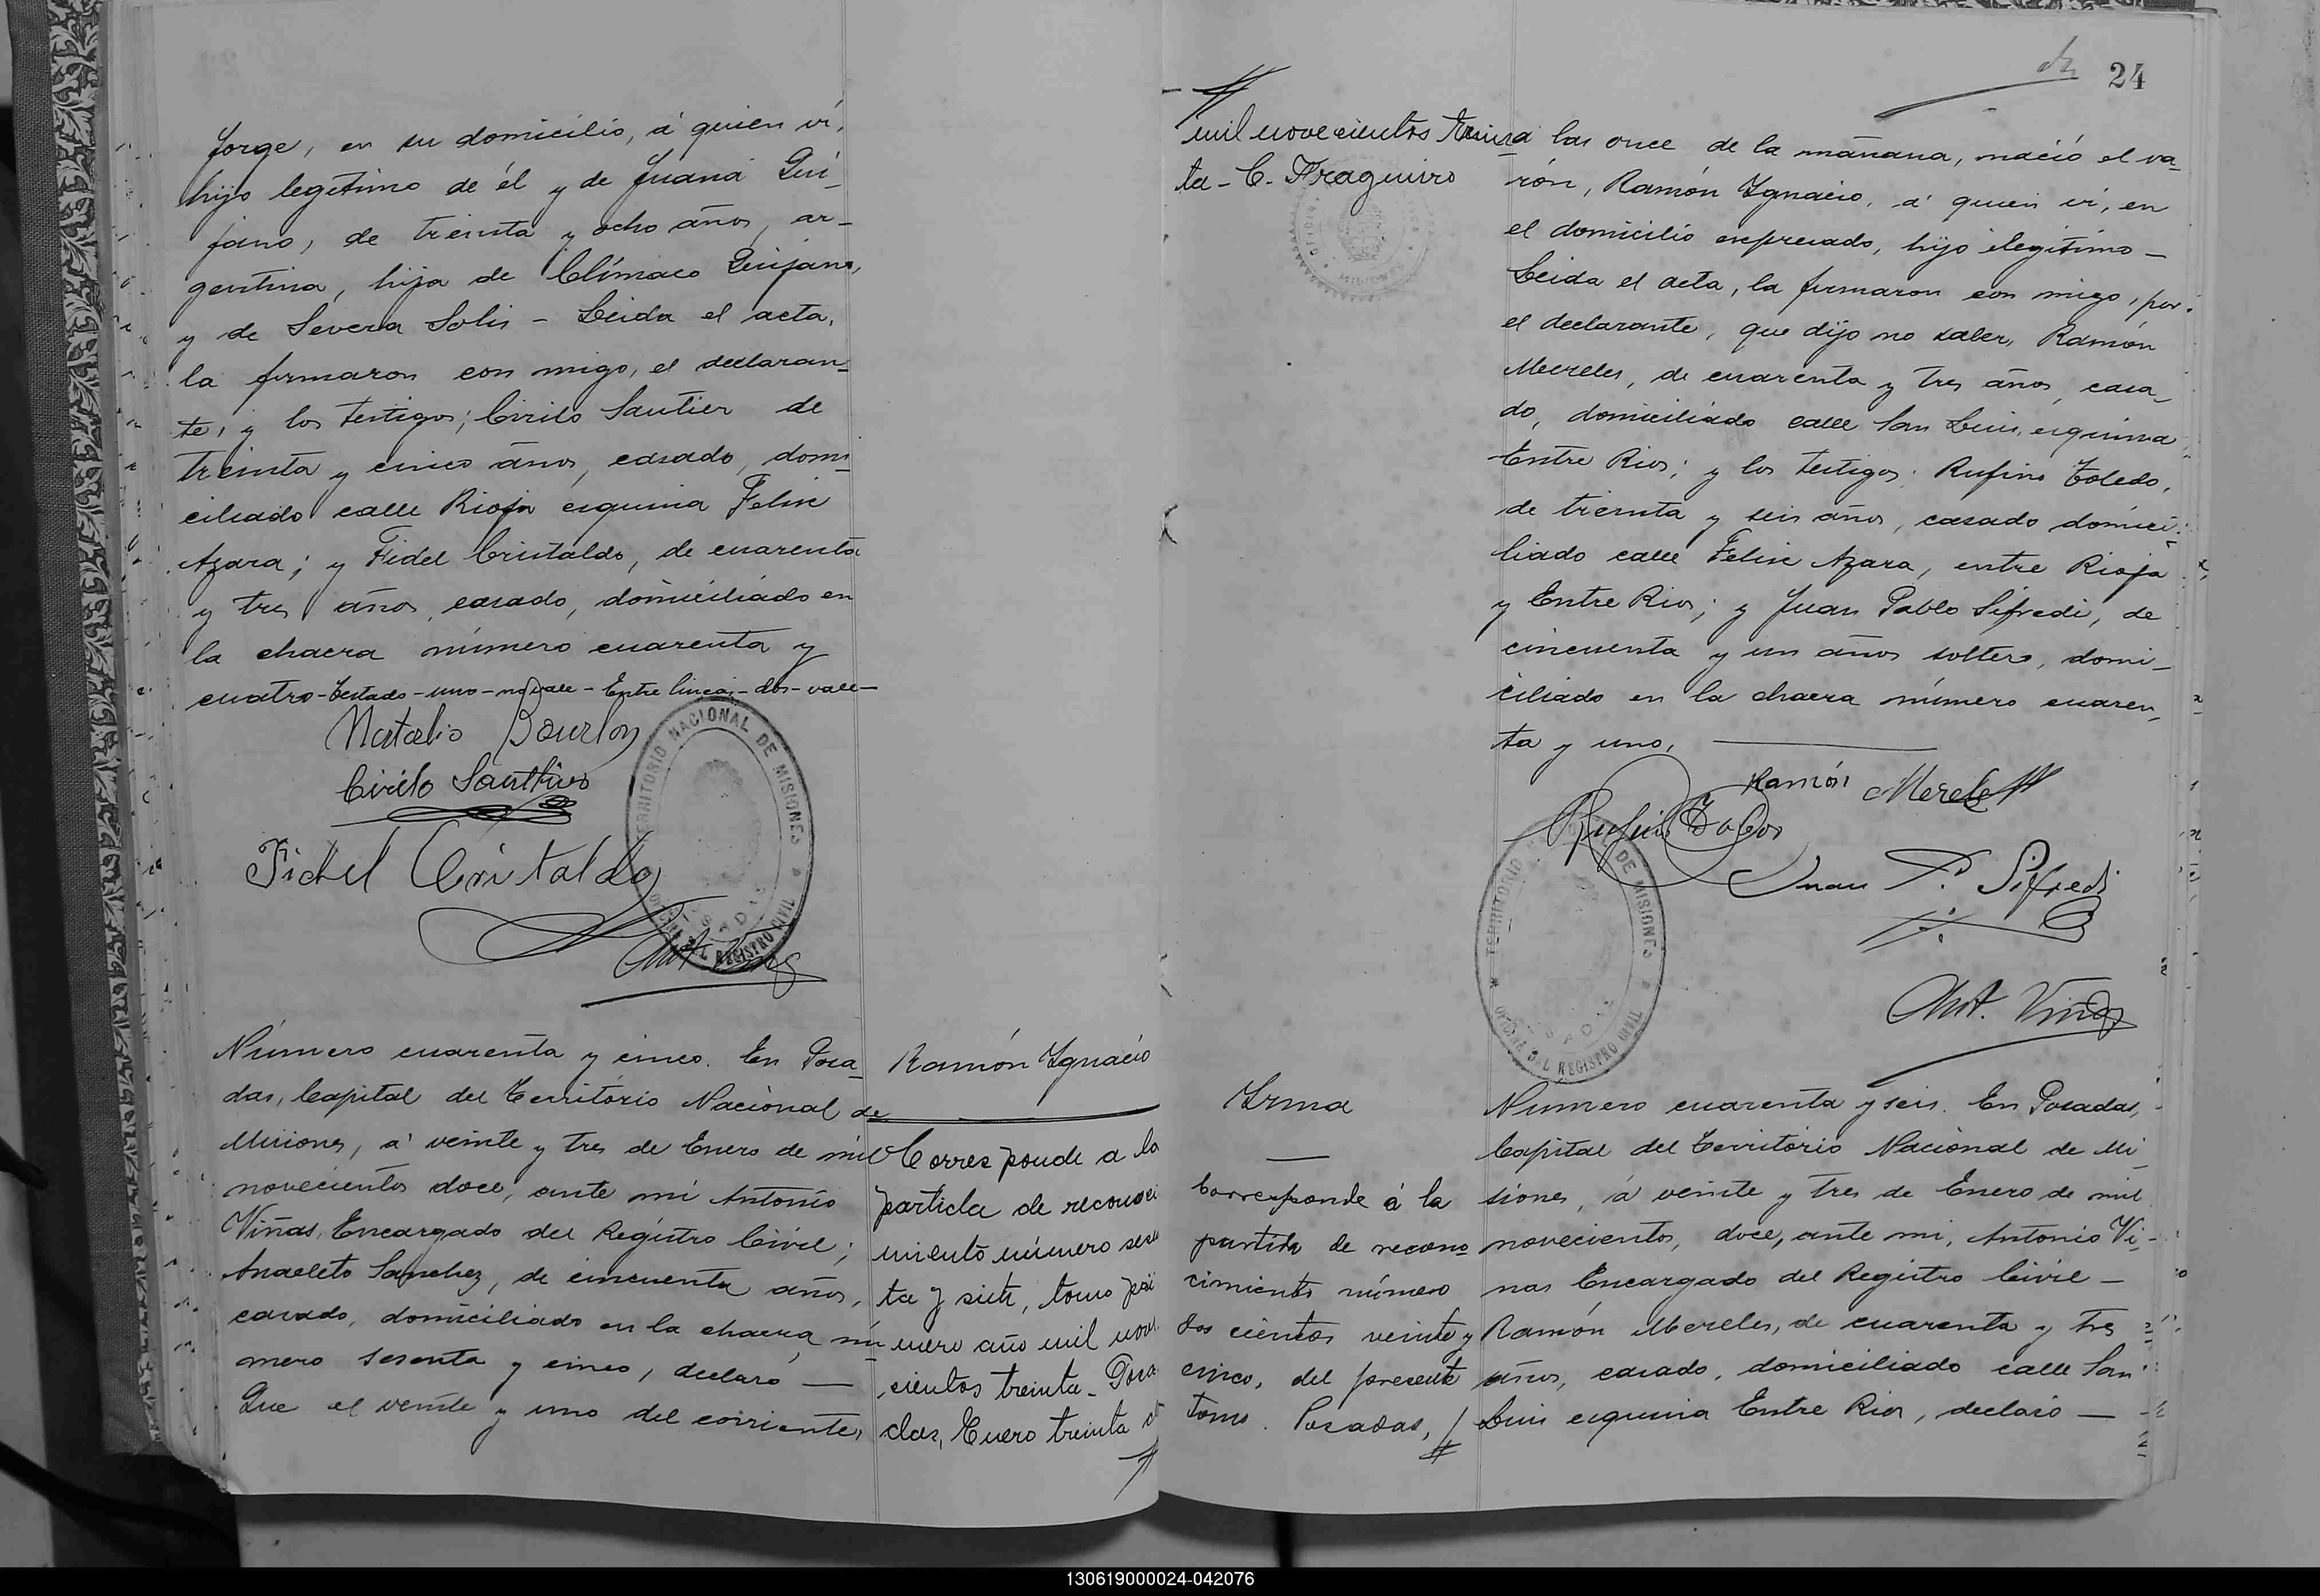 Jorge, en su domicilio, á quien ví,
hijo legítimo de él y de Juana Qui-
jano, de treinta y ocho años, ar-
gentina, hija de Clímaco Quijano,
y de Severa Solis - Leida el acta,
la firmaron con migo, el declaran-
te, y los testigos; Cirilo Santier de
treinta y cinco años, casado, domi-
ciliado calle Rioja esquina Felix
Azara; y Fidel Cristaldo, de cuarenta
y tres años, casado, domiciliado en
la chacra número cuarenta y
cuatro - Testado - uno - no vale - Entre lineas - dos - vale -
Natalio Bourlon
Cirilo
Fidel Cristaldo
TERRITORIO NACIONAL DE MISIONES
OFICINA DEL REGISTRO CIVIL
POSADAS
Número cuarenta y cinco. En Posa-
das, Capital del Territorio Nacional de
Misiones, a' veinte y tres de Enero de mil
novecientos doce, ante mi Antonio
Viñas, Encargado del Registro Civil;
Anacleto Sanchez, de cincuenta años,
casado, domiciliado en la chacra nú-
mero sesenta y cinco, declaró —
Que el veinte y uno del corriente,
Ramón Ignacio
Corresponde a la
partida de reconoci
miento número sesen
ta y siete, tomo pri
mero año mil nove
cientos treinta - Posa
das, Enero treinta d
24
mil novecientos trein
ta - C. Fraguiro
a las once de la mañana, nació el va-
rón, Ramón Ignacio, a' quien ví, en
el domicilio expresado, hijo ilegítimo -
Leida el acta, la firmaron con migo, por
el declarante, que dijo no saber, Ramón
Mereles, de cuarenta y tres años, casa-
do, domiciliado calle San Luis, esquina
Entre Rios; y los testigos: Rufino Toledo,
de treinta y seis años, casado domici-
liado calle Felix Azara, entre Rioja
y Entre Rios; y Juan Pablo Sifredi, de
cincuenta y un años soltero, domi-
ciliado en la chacra número cuaren-
ta y uno,
Ramón Mereles
Juan P. Sifredi
TERRITORIO DE MISIONES
OFICINA DEL REGISTRO CIVIL
POSADAS
Ant. Viñas
Irma
Corresponde á la
partida de recono
cimiento número
dos cientos veinte y
cinco, del presente
tomo. Posadas,
Número cuarenta y seis. En Posadas,
Capital del Territorio Nacional de Mi-
siones, á veinte y tres de Enero de mil
novecientos, doce, ante mi, Antonio Vi-
ñas Encargado del Registro Civil -
Ramón Mereles, de cuarenta y tres
años, casado, domiciliado calle San
Luis esquina Entre Rios, declaró —
130619000024-042076